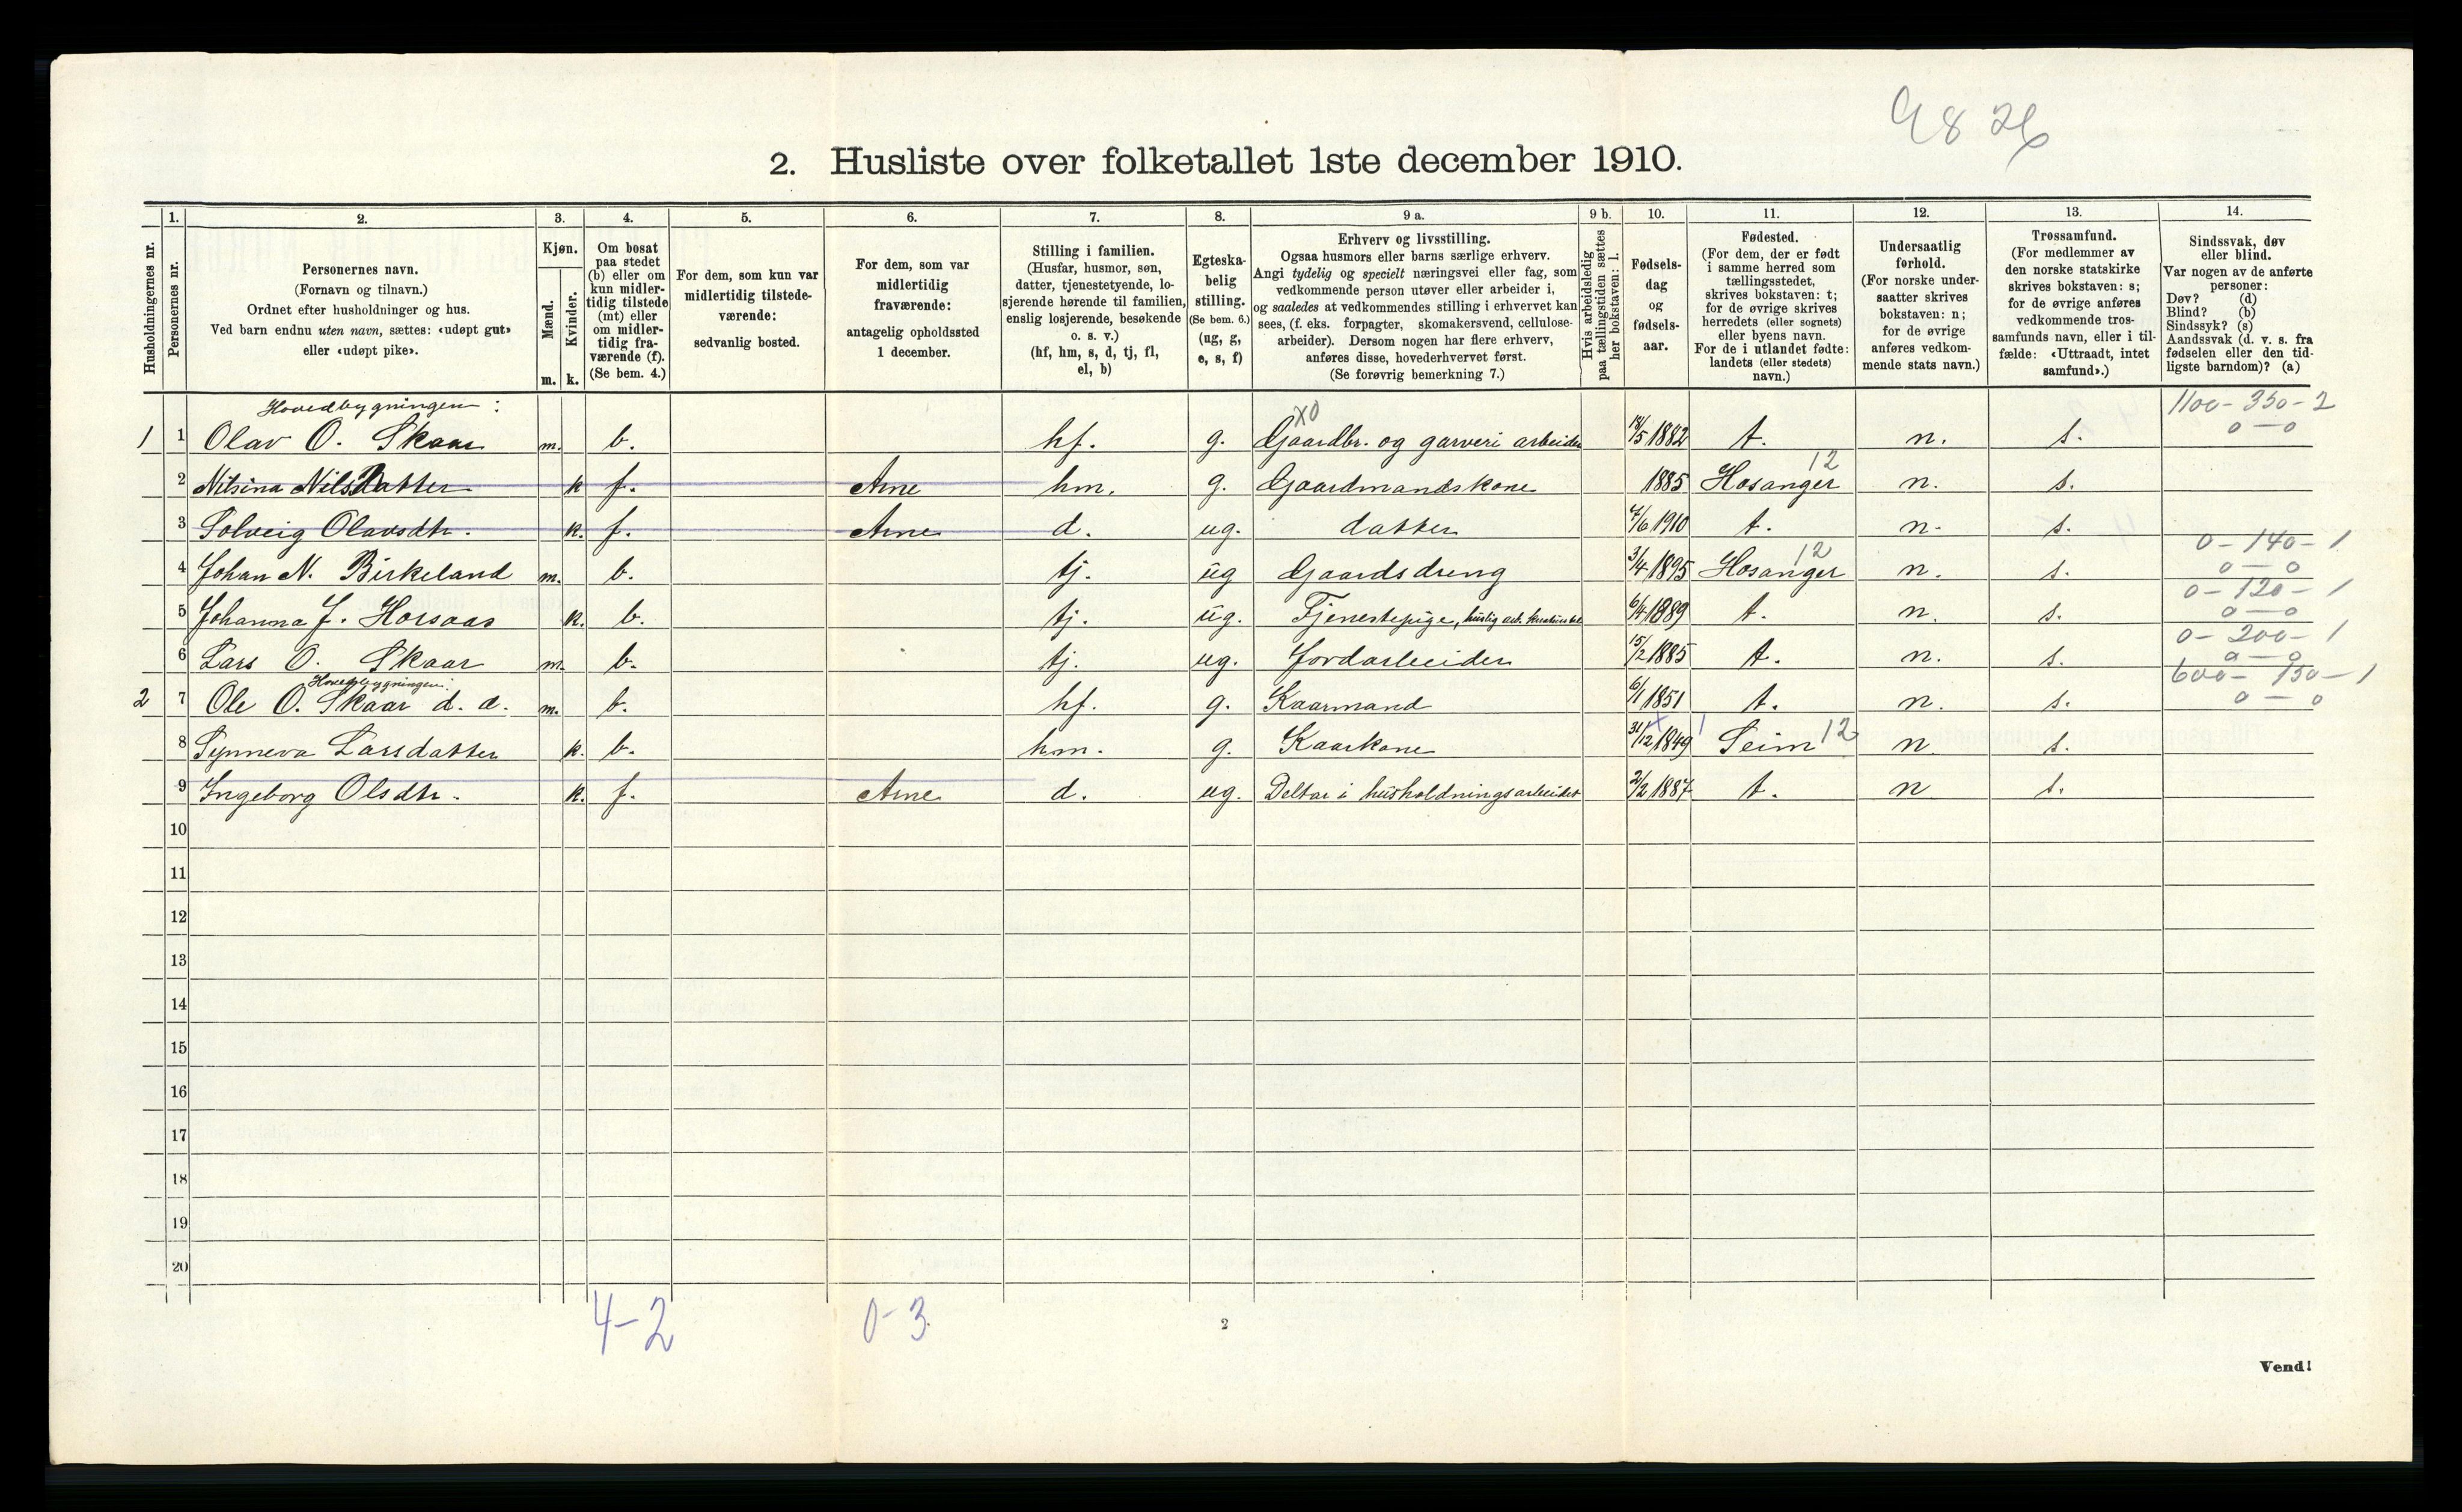 9826
2. Husliste over folketallet 1ste december 1910.
Husholdningernes nr.
1.
Personernes nr.
2.
Personernes navn.
(Fornavn og tilnavn.)
Ordnet efter husholdninger og hus.
Ved barn endnu uten navn, sættes: «udøpt gut»
eller «udøpt pike».
3.
Kjøn.
Mænd.
Kvinder.
m. k.
4.
Om bosat
paa stedet
(b) eller om
kun midler-
tidig tilstede
(mt) eller
om midler-
tidig fra-
værende (f).
(Se bem. 4.)
5.
For dem, som kun var
midlertidig tilstede-
værende:
sedvanlig bosted.
6.
For dem, som var
midlertidig
fraværende:
antagelig opholdssted
1 december.
7.
Stilling i familien.
(Husfar, husmor, søn,
datter, tjenestetyende, lo-
sjerende hørende til familien,
enslig losjerende, besøkende
o. s. v.)
(hf, hm, s, d, tj, fl,
el, b)
8.
Egteska-
belig
stilling.
(Se bem. 6.)
(ug, g,
e, s, f)
9 a.
Erhverv og livsstilling.
Ogsaa husmors eller barns særlige erhverv.
Angi tydelig og specielt næringsvei eller fag, som
vedkommende person utøver eller arbeider i,
og saaledes at vedkommendes stilling i erhvervet kan
sees, (f. eks. forpagter, skomakersvend, cellulose-
arbeider). Dersom nogen har flere erhverv,
anføres disse, hovederhvervet først.
(Se forøvrig bemerkning 7.)
9 b.
Hvis arbeidsledig
paa tællingstiden sættes
her bokstaven: l.
10.
Fødsels-
dag
og
fødsels-
aar.
11.
Fødested.
(For dem, der er født
i samme herred som
tællingsstedet,
skrives bokstaven: t;
for de øvrige skrives
herredets (eller sognets)
eller byens navn.
For de i utlandet fødte:
landets (eller stedets)
navn.)
12.
Undersaatlig
forhold.
(For norske under-
saatter skrives
bokstaven: n;
for de øvrige
anføres vedkom-
mende stats navn.)
13.
Trossamfund.
(For medlemmer av
den norske statskirke
skrives bokstaven: s;
for de øvrige anføres
vedkommende tros-
samfunds navn, eller i til-
fælde: «Uttraadt, intet
samfund».)
14.
Sindssvak, døv
eller blind.
Var nogen av de anførte
personer:
Døv? (d)
Blind? (b)
Sindssyk? (s)
Aandssvak (d. v. s. fra
fødselen eller den tid-
ligste barndom)? (a)
Hovedbygningen: X0 1100-350-2
1 1 Olav O. Skaar m. b. hf. g. Gaardbr. og garveri arbeider 18/5 1882 t. n. s. 0-0
2 Nilsina NilsDatter k f. Arne hm. g. Gaardmandskone 1885 Hosanger 12 n. s.
3 Solveig Olavsdtr. k. f. Arne d. ug. datter 7/6 1910 t. n. s.
4 Johan N. Birkeland m. b. tj. ug Gaardsdreng 3/4 1895 Hosanger 12 n. s. 0-140-1 0-0
5 Johanna J. Horsaas k. b. tj. ug. Tjenestepige, huslig arb. 6/4 1889 t. n. s. 0-120-1 0-0
6 Lars O. Skaar m. b. tj. ug. Jordarbeider 15/2 1885 t. n. s. 0-200-1 0-0
Hovedbygningen:
2 7 Ole O. Skaar d. a. m. b. hf. g. Kaarmand 6/1 1851 t. n. s. 600-150-1 0-0
8 Synneva Larsdatter k. b. hm. g. Kaarkone 31/12 1849 Seim 12 n s.
9 Ingeborg Olsdtr. k. f. Arne d. ug. Deltar i husholdningsarbeidet 2/2 1887 t. n s.
10
11
12
13
14
15
16
17
18
19
20
4-2 0-3
2
Vend!